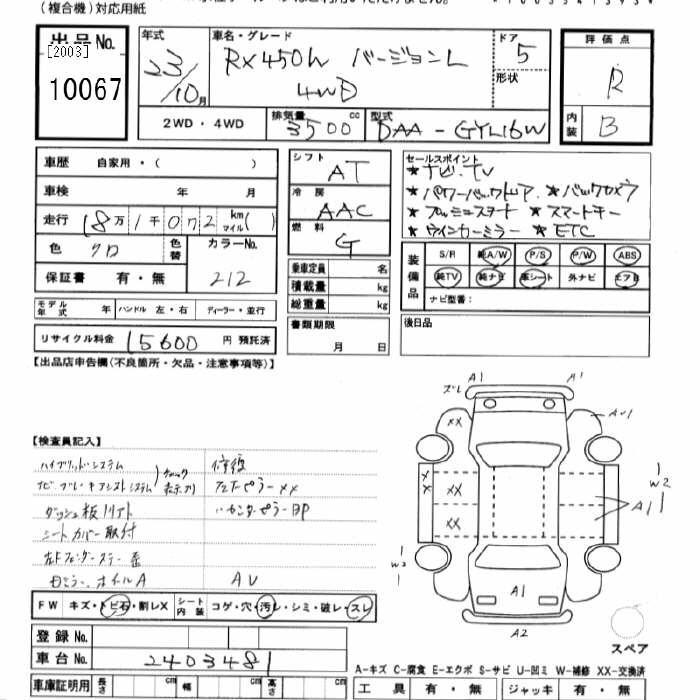 (複合機)対応用紙
出品No.
[2003]
10067
年式
23/10月
車名・グレード
RX450h バージョンL
4WD
ドア
5
形状
評価点
R
内装
B
2WD・4WD
排気量
3500 cc
型式
DAA-GYL16W
車歴 自家用・( )
車検 年 月
走行 18万1千072 km マイル( )
色 クロ 色替
カラーNo.
212
保証書 有・無
モデル年式 年 ハンドル 左・右 ディーラー・並行
リサイクル料金 15600 円 預託済
シフト
AT
冷房
AAC
燃料
G
乗車定員 名
積載量 kg
総重量 kg
書類期限
月 日
セールスポイント
★ナビ・TV
★パワーバックドア ★バックカメラ
★プッシュスタート ★スマートキー
★ウインカーミラー ★ETC
装備品
S/R 純A/W P/S P/W ABS
純TV 純ナビ 革シート 外ナビ エアB
ナビ型番:
後日品
【出品店申告欄(不良箇所・欠品・注意事項等)】
【検査員記入】
ハイブリッドシステム
ナビ ブレーキアシストシステム
チェック
表示アリ
ダッシュ板ハガレ
シートカバー取付
左Fフェンダーステー歪
ミラー、ホイルA
AU
修復
左FピラーXX
センターピラーBP
FW キズ・トビ石・割レX シート内装 コゲ・穴・汚レ・シミ・破レ・スレ
登録No.
車台No. 2403481
車庫証明用 長さ cm 幅 cm 高さ cm
ズレ A1 A1
XX AU1
XX
XX XX
W2
A1
W3
A1
A2
スペア
A-キズ C-腐食 E-エクボ S-サビ U-凹ミ W-補修 XX-交換済
工具 有・無 ジャッキ 有・無